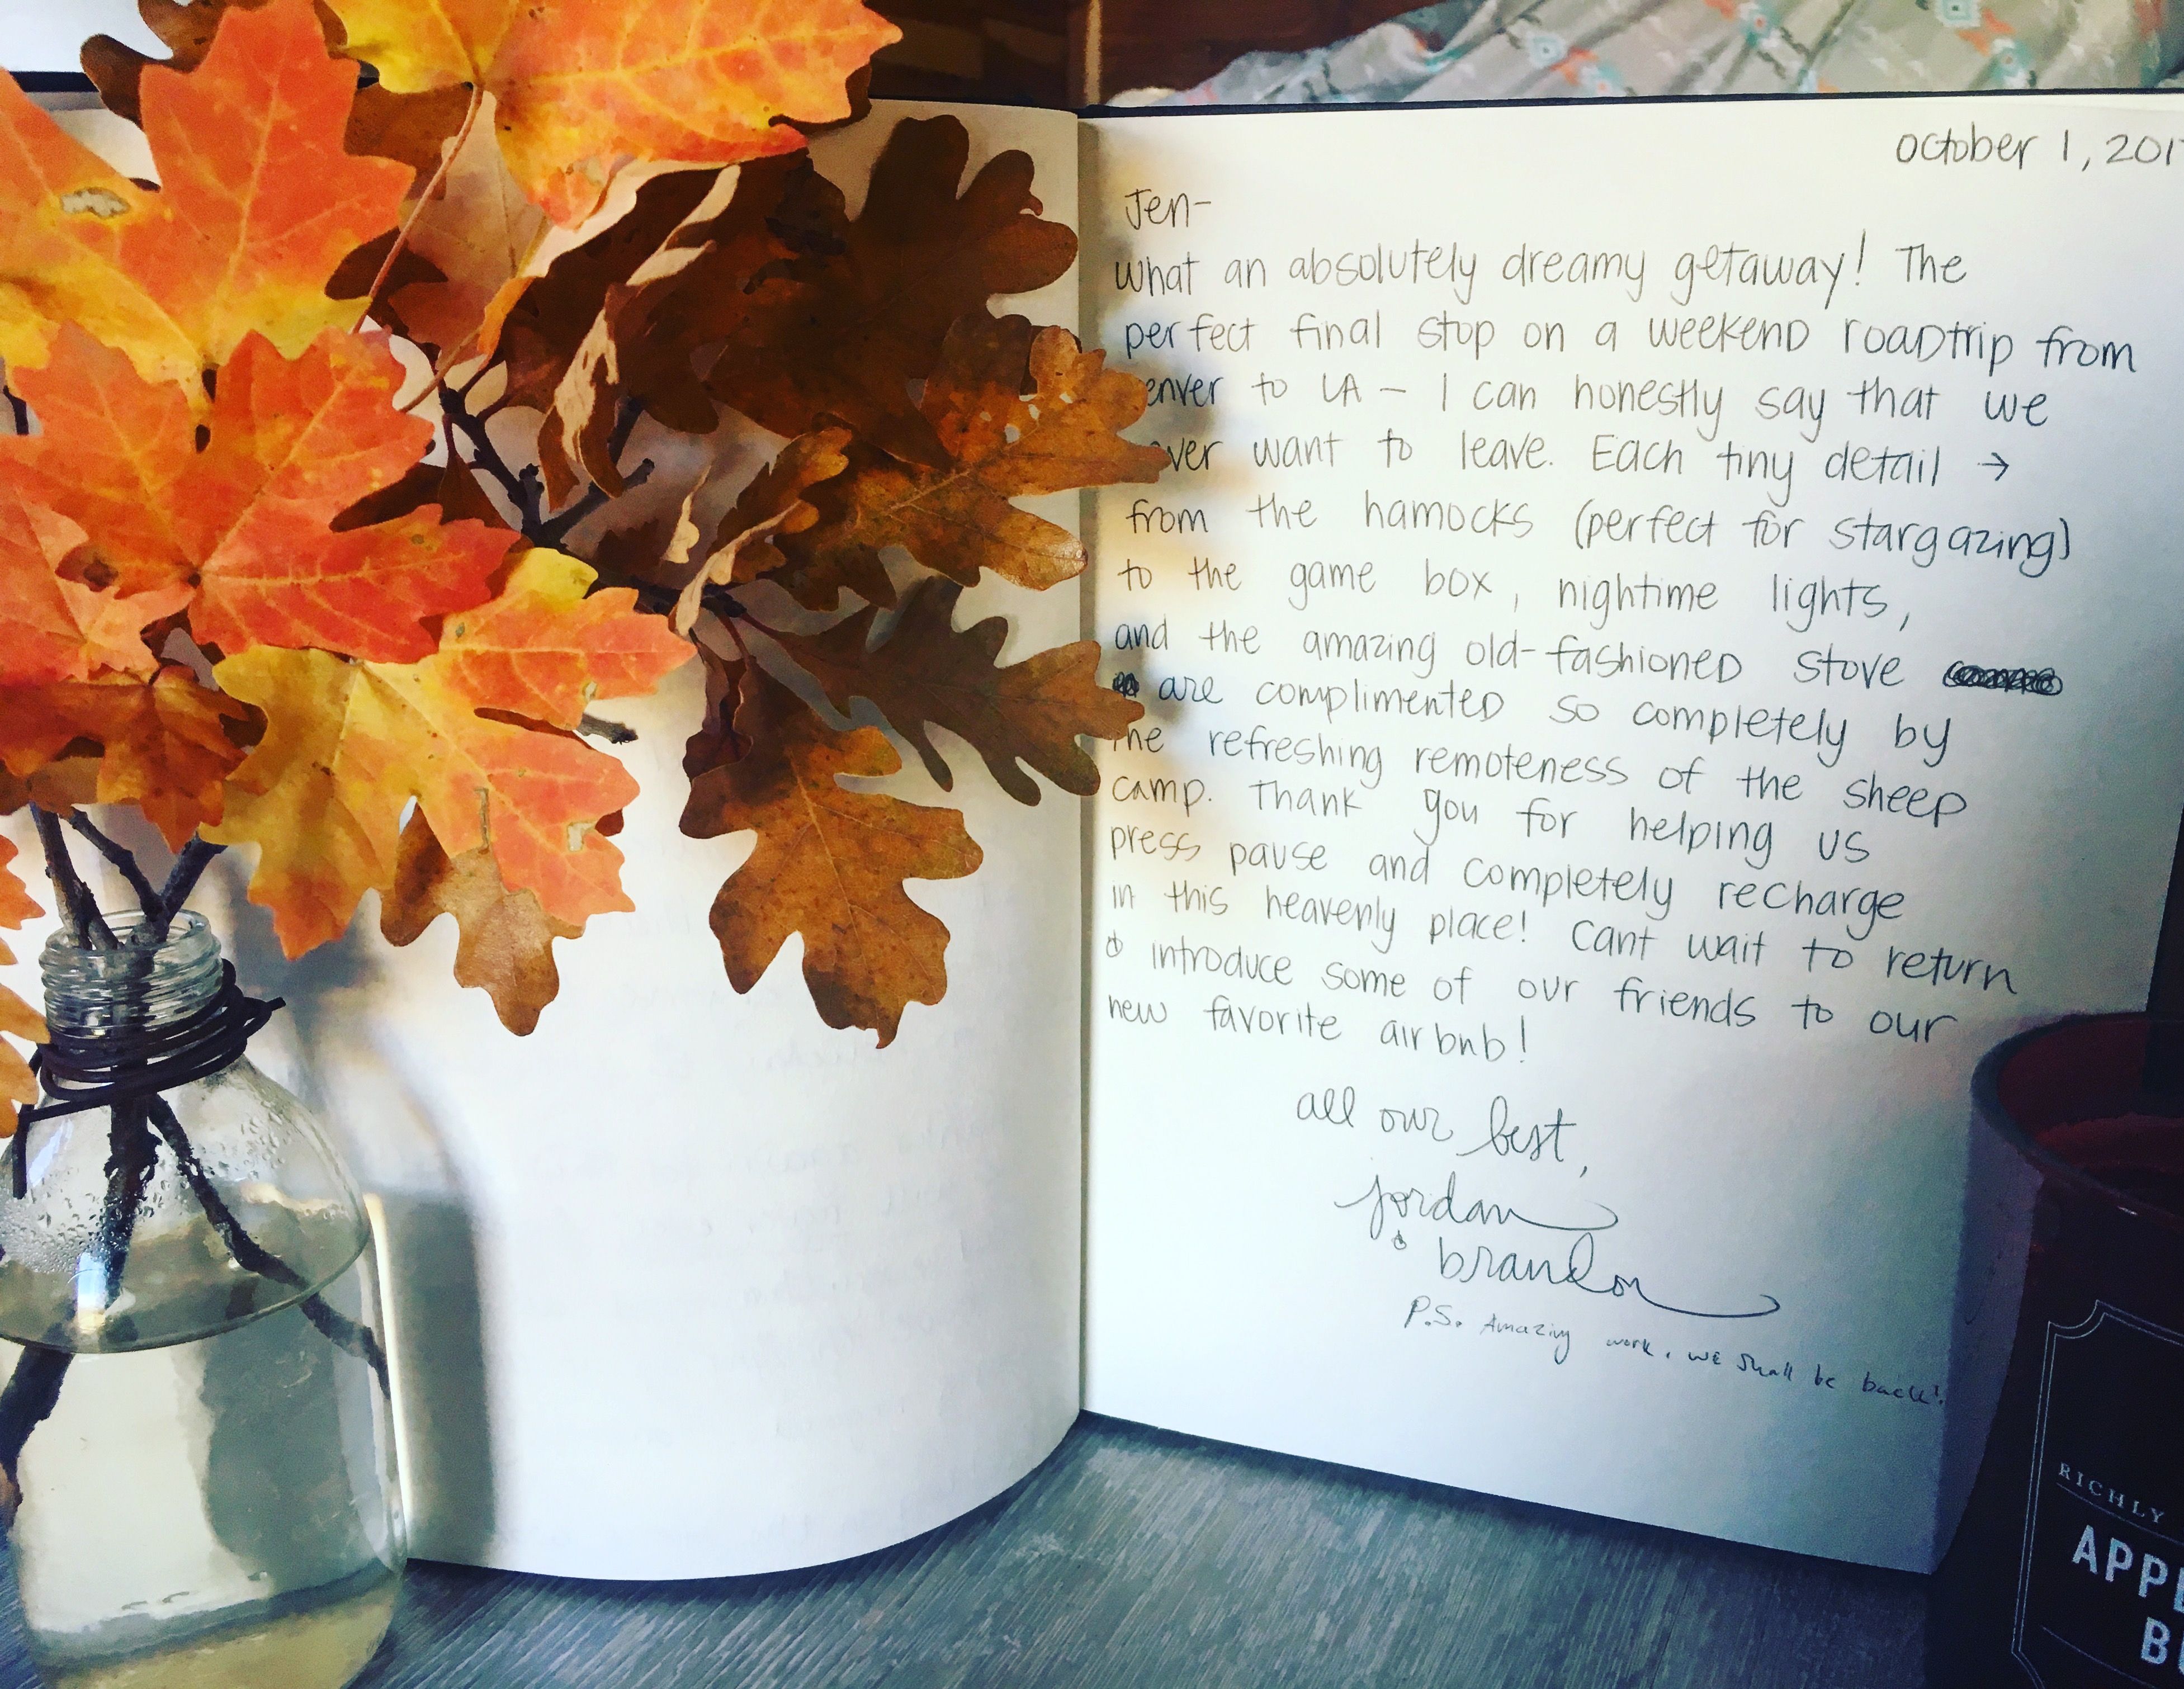 october 1, 201
Jen-
What an absolutely dreamy getaway! The
perfect final stop on a weekend roadtrip from
enver to LA - I can honestly say that we
ver want to leave. Each tiny detail →
from the hamocks (perfect for stargazing)
to the game box, nightime lights,
and the amazing old-fashioned stove
are complimented so completely by
the refreshing remoteness of the sheep
camp. Thank you for helping us
press pause and completely recharge
in this heavenly place! Cant wait to return
& introduce some of our friends to our
new favorite airbnb!
all our best,
jordan
& brandon
P.S. Amazing work. We shall be back!
RICHLY
APPL
B